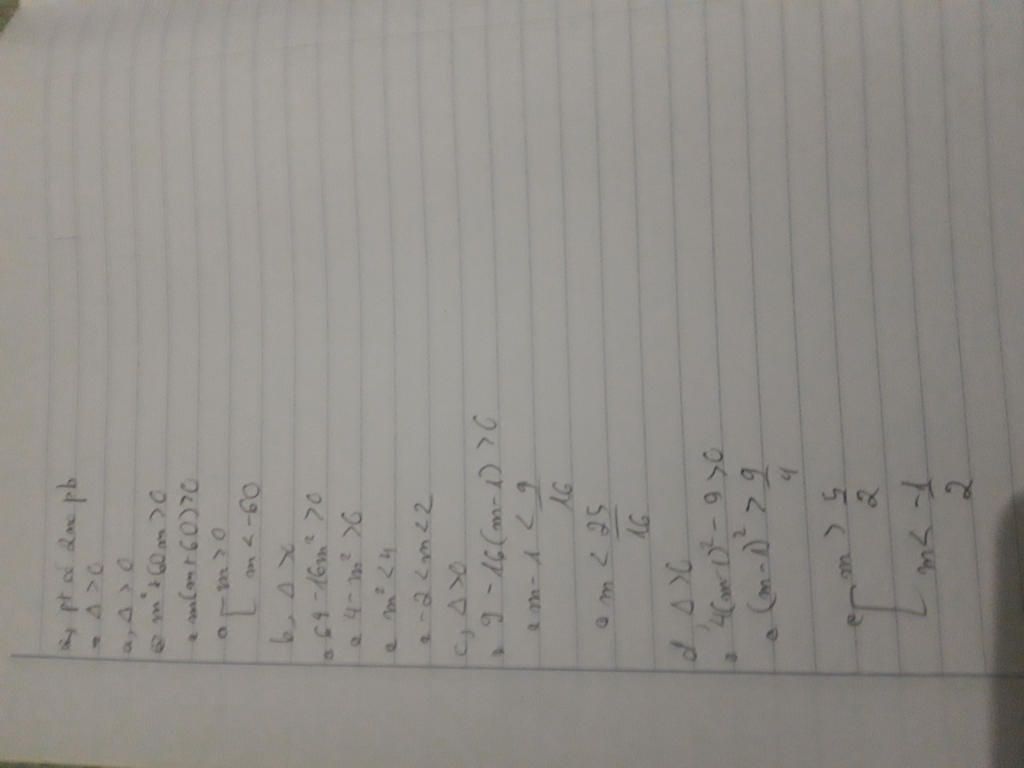 a, pt có 2no pb
⇔ Δ > 0
a, Δ > 0
⇔ m² + 60m > 0
⇔ m(m + 60) > 0
⇔ [ m > 0
[ m < -60
b, Δ >
⇔ 64 - 16m² > 0
⇔ 4 - m² > 0
⇔ m² < 4
⇔ -2 < m < 2
c, Δ > 0
⇔ 9 - 16(m - 1) > 0
⇔ m - 1 < 9/16
⇔ m < 25/16
d, Δ >
⇔ 4(m - 1)² - 9 > 0
⇔ (m - 1)² > 9/4
⇔ [ m > 5/2
[ m < -1/2